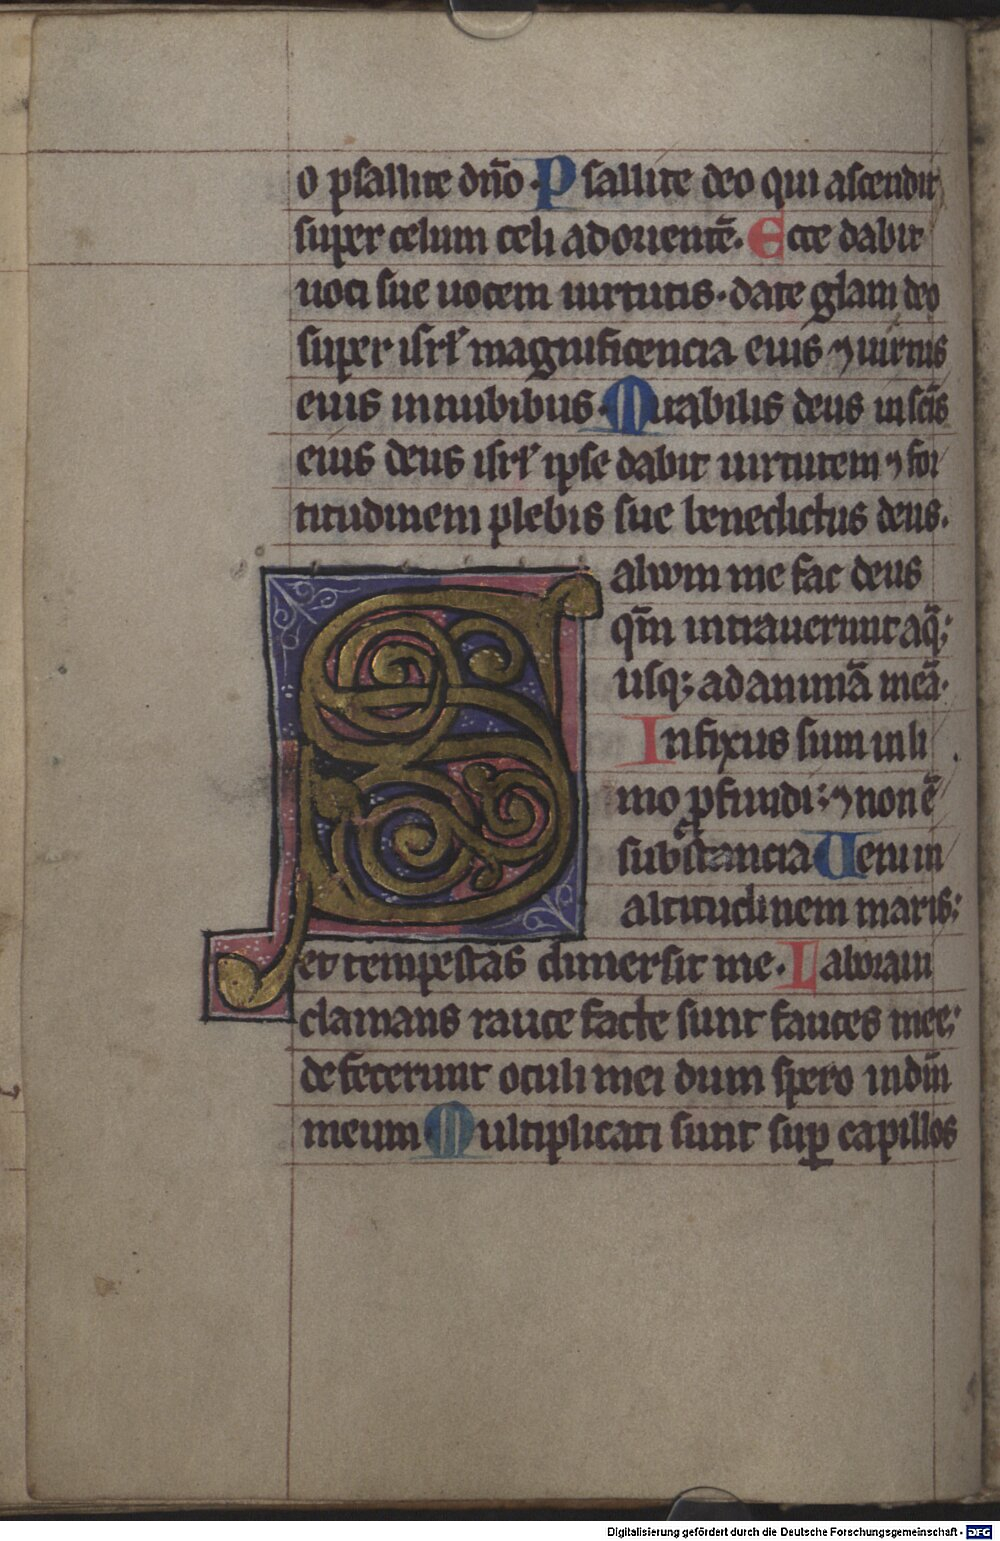 o psallite dño P sallite deo qui ascendit
super celum celi ad orientē. Ecce dabit
uoci sue uocem uirtutis. date glam deo
super isrł magnificencia eius ⁊ uirtus
eius in nubibus. Mirabilis deus in scīs
eius deus isrł ipse dabit uirtutem ⁊ for
titudinem plebis sue benedictus deus.
Saluum me fac deus
qm̄ intrauerunt aq̄;
usq; ad animā meā.
Infixus sum in li
mo ꝓfundi: ⁊ non ē
substancia Ueni in
altitudinem maris:
et tempestas dimersit me. Laboraui
clamans rauce facte sunt fauces mee:
defecerunt oculi mei dum spero in dm̄
meum Multiplicati sunt suꝑ capillos
Digitalisierung gefördert durch die Deutsche Forschungsgemeinschaft - DFG